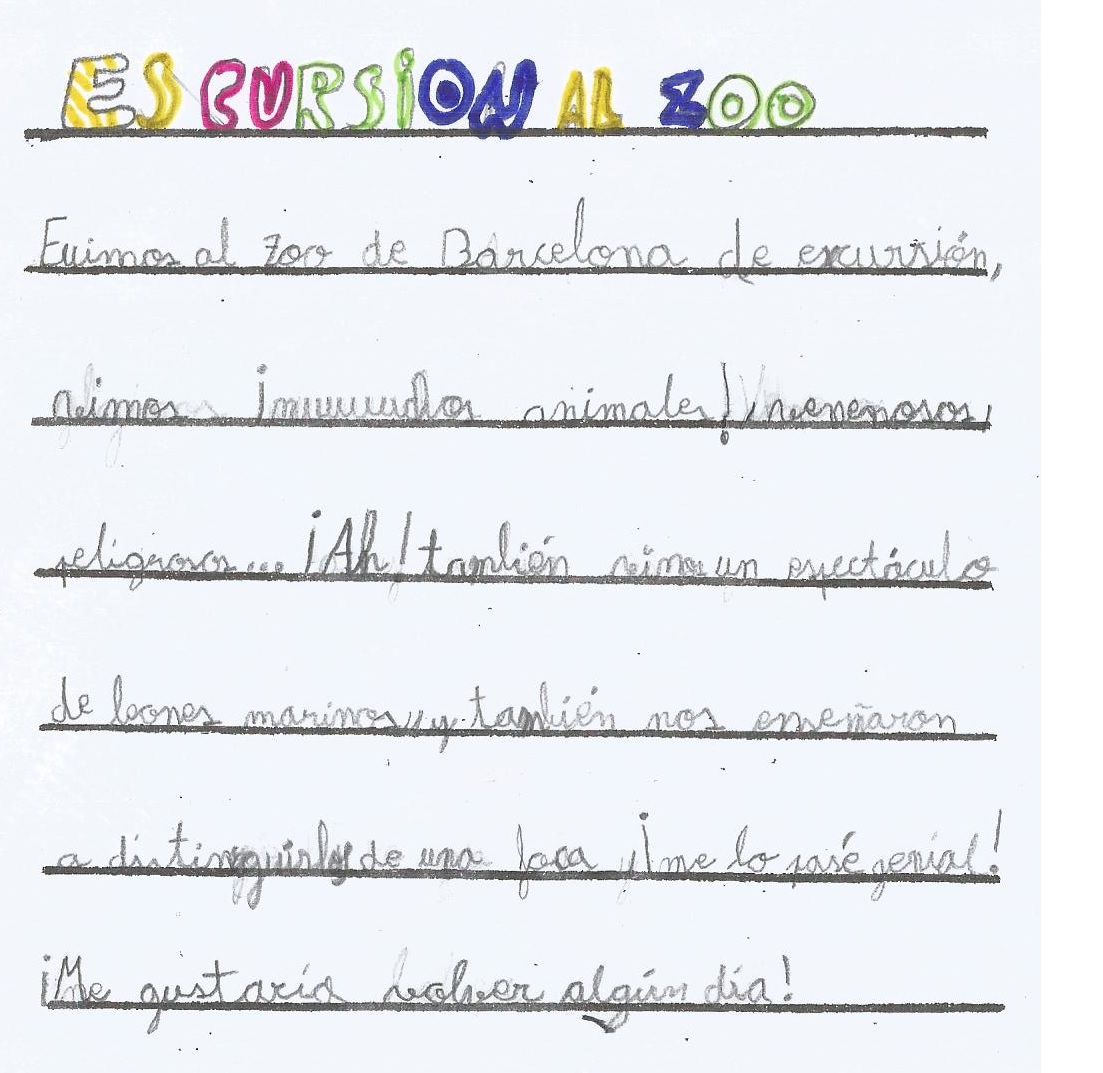 ESCURSION AL ZOO
Fuimos al zoo de Barcelona de excursión,
vimos ¡muuuuuchos animales! venenosos,
peligrosos... ¡Ah! también vimos un espectáculo
de leones marinos, y también nos enseñaron
a distinguirlos de una foca y ¡me lo pasé genial!
¡Me gustaría volver algún día!